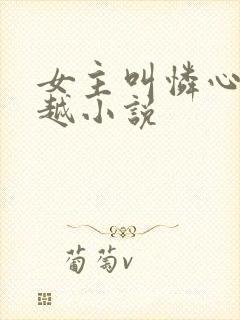 女主叫怜心
越小说
葡萄v